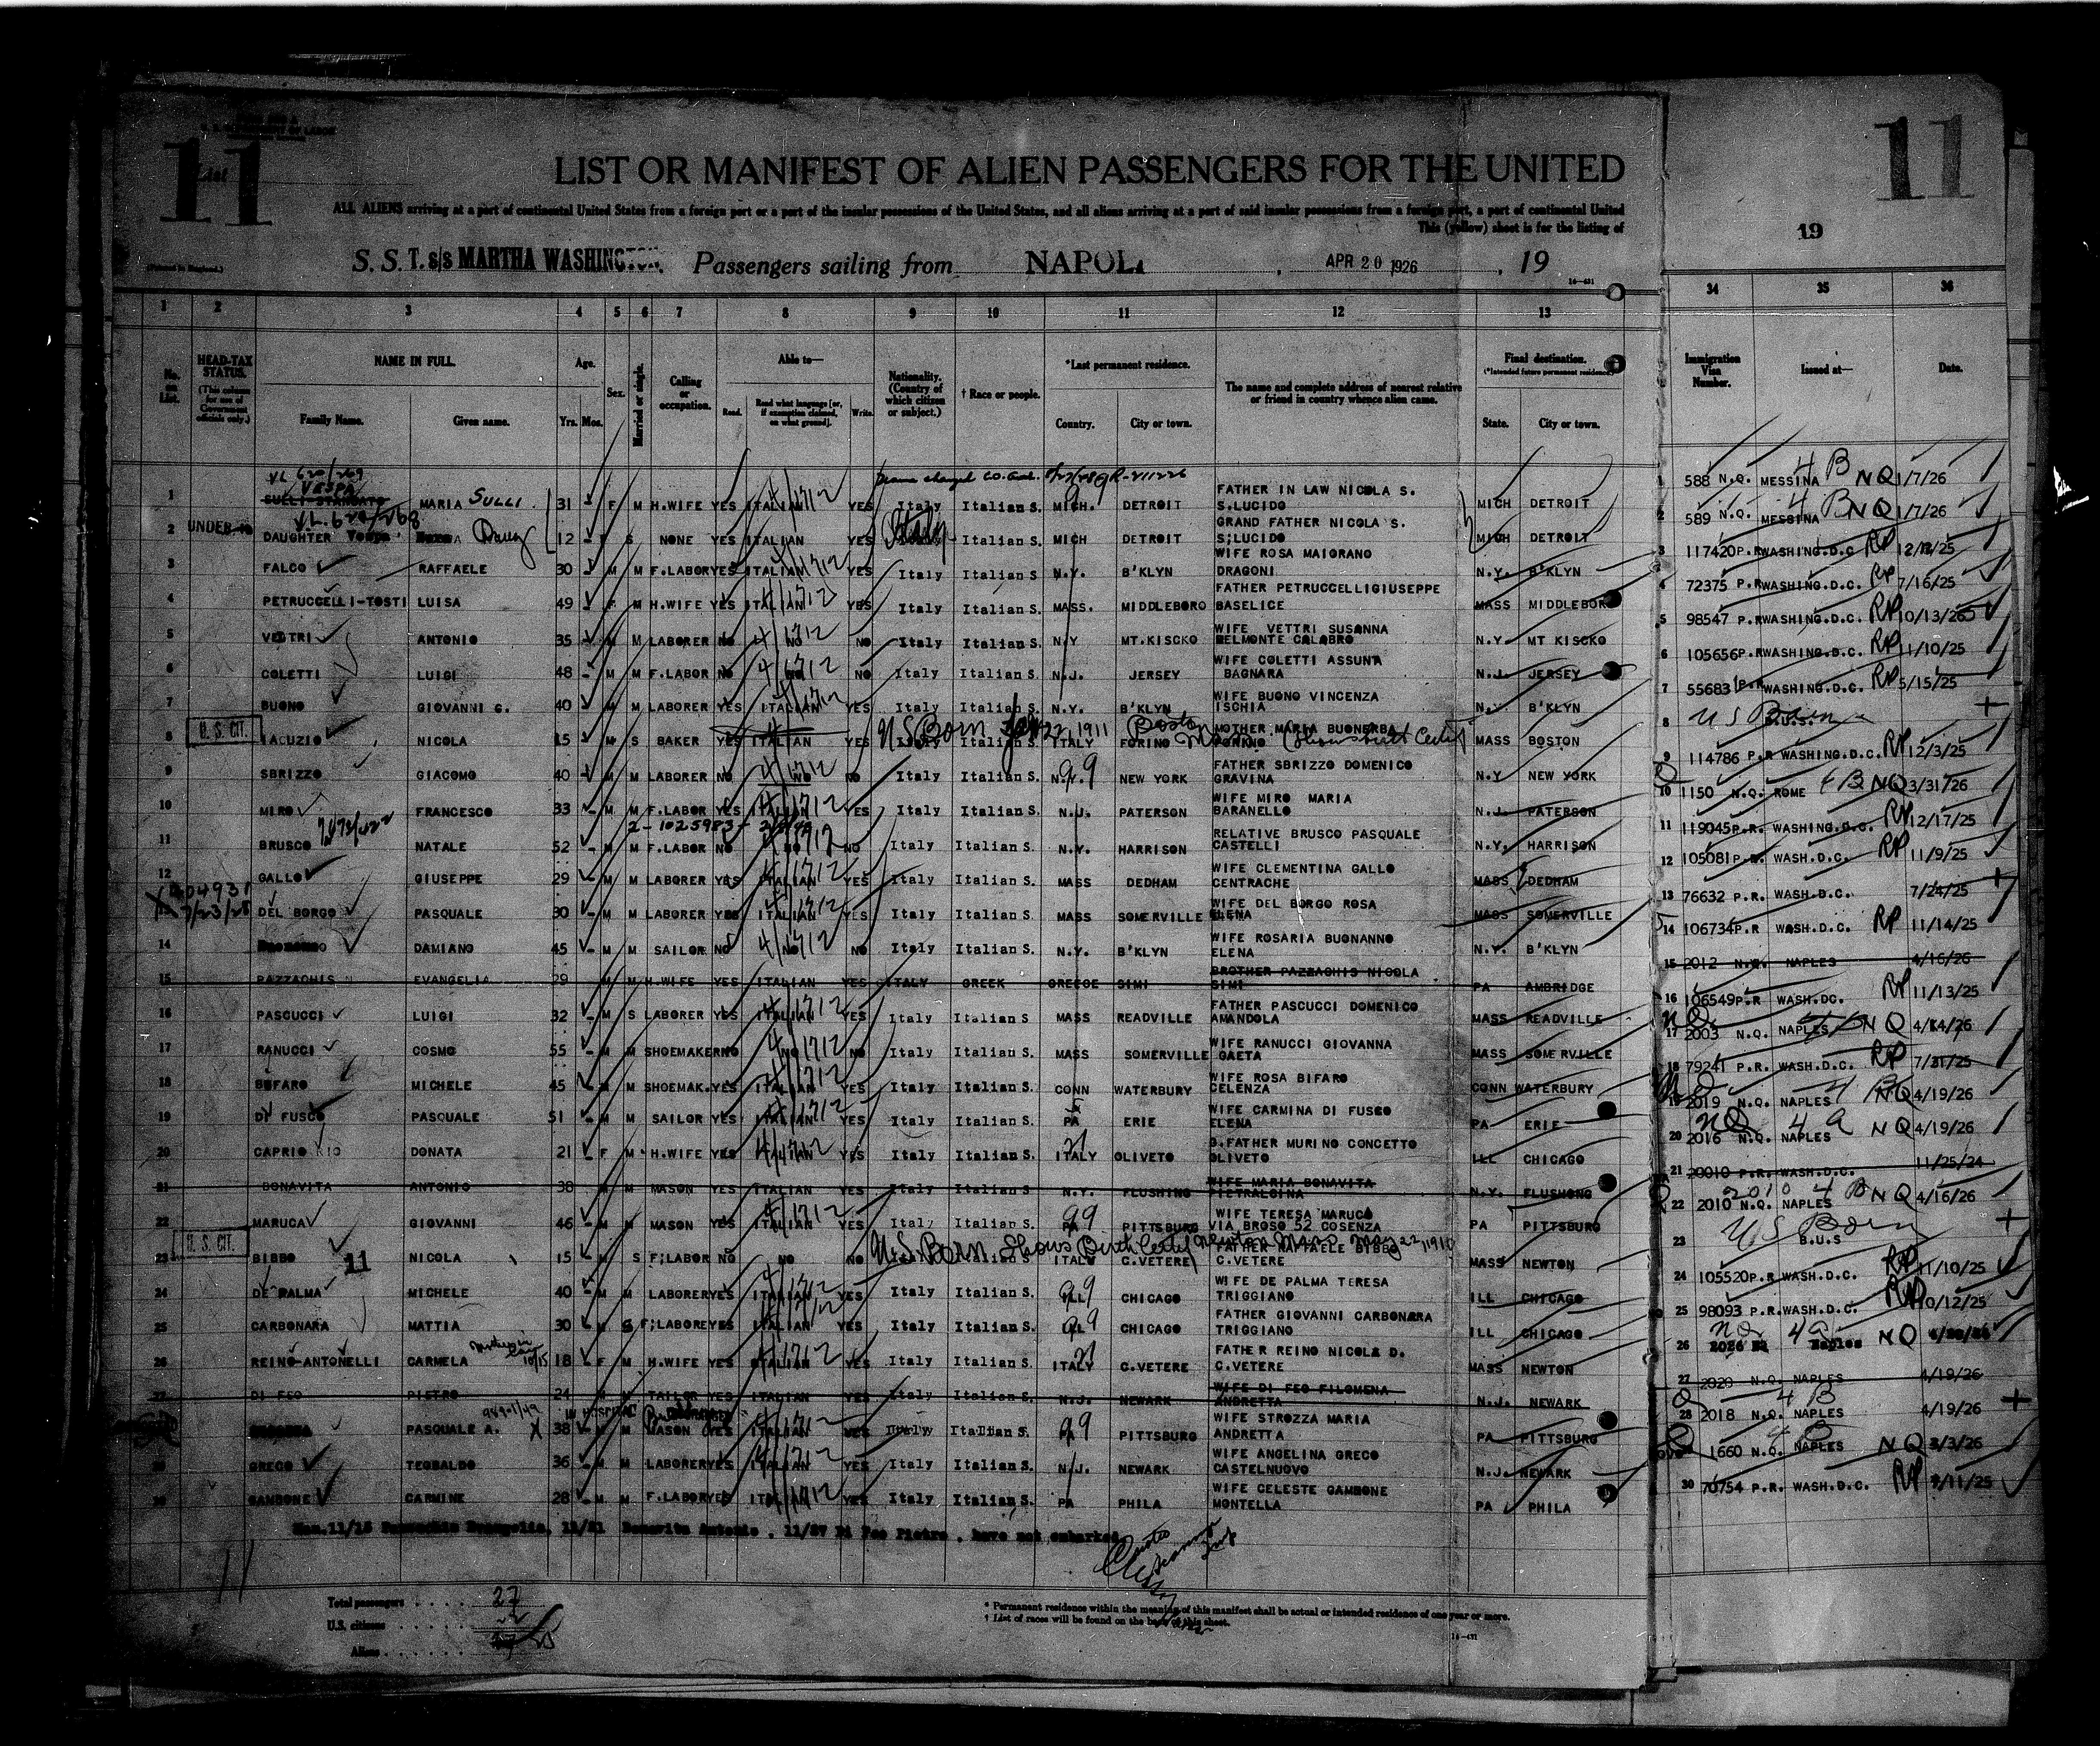 11
List
11
LIST OR MANIFEST OF ALIEN PASSENGERS FOR THE UNITED
ALL ALIENS arriving at a port of continental United States from a foreign port or a port of the insular possessions of the United States, and all aliens arriving at a port of said insular possessions from a foreign port, a port of continental United
This (yellow) sheet is for the listing of
19
S. S. T. s/s MARTHA WASHINGTON. Passengers sailing from NAPOLI , APR 20 1926 , 19
1 2 3 4 5 6 7 8 9 10 11 12 13 34 35 36
No. on List. HEAD-TAX STATUS. (This column for use of Government officials only.) NAME IN FULL. Family Name. Given name. Age. Yrs. Mos. Sex. Married or single. Calling or occupation. Able to— Read. Read what language [or, if exemption claimed, on what ground]. Write. Nationality. (Country of which citizen or subject.) † Race or people. *Last permanent residence. Country. City or town. The name and complete address of nearest relative or friend in country whence alien came. Final destination. (*Intended future permanent residence.) State. City or town. Immigration Visa Number. Issued at— Date.
1 VESPA MARIA SULLI 31 F M H.WIFE YES ITALIAN YES Italy Italian S. MICH. DETROIT FATHER IN LAW NICOLA S. S.LUCIDO MICH DETROIT 588 N.Q. MESSINA 4 B NQ 1/7/26
2 UNDER DAUGHTER 12 F S NONE YES ITALIAN YES Italy Italian S. MICH DETROIT GRAND FATHER NICOLA S. S;LUCIDO MICH DETROIT 589 N.Q. MESSINA 4 B NQ 1/7/26
3 FALCO RAFFAELE 30 M M F.LABOR YES ITALIAN YES Italy Italian S N.Y. B'KLYN WIFE ROSA MAIORANO DRAGONI N.Y. B'KLYN 117420 P.R WASHING.D.C RP 12/12/25
4 PETRUCCELLI-TOSTI LUISA 49 F M H.WIFE YES ITALIAN YES Italy Italian S MASS. MIDDLEBORO FATHER PETRUCCELLI GIUSEPPE BASELICE MASS MIDDLEBOR 72375 P.R WASHING.D.C. RP 7/16/25
5 VETTRI ANTONIO 35 M M LABORER NO NO NO Italy Italian S N.Y MT.KISCKO WIFE VETTRI SUSANNA BELMONTE CALABRO N.Y. MT KISCKO 98547 P.R WASHING.D.C. RP 10/13/25
6 COLETTI LUIGI 48 M M F.LABOR NO NO NO Italy Italian S N.J. JERSEY WIFE COLETTI ASSUNTA BAGNARA N.J. JERSEY 105656 P.R WASHING.D.C. RP 11/10/25
7 BUONO GIOVANNI G. 40 M M LABORER YES ITALIAN YES Italy Italian S N.Y. B'KLYN WIFE BUONO VINCENZA ISCHIA N.Y. B'KLYN 55683 P.R WASHING.D.C. RP 5/15/25
8 U. S. CIT. IACUZIO NICOLA 15 M S BAKER YES ITALIAN YES US Born 22, 1911 Boston Italy Italian S. ITALY FORINO MOTHER MARIA BUONERBA FORINO MASS BOSTON US Born
9 SBRIZZO GIACOMO 40 M M LABORER NO NO NO Italy Italian S. N.Y. NEW YORK FATHER SBRIZZO DOMENICO GRAVINA N.Y NEW YORK 114786 P.R WASHING.D.C. RP 12/3/25
10 MIRO FRANCESCO 33 M M F.LABOR YES ITALIAN YES Italy Italian S. N.J. PATERSON WIFE MIRO MARIA BARANELLO N.J. PATERSON 1150 N.Q. ROME 4 B NQ 3/31/26
11 BRUSCO NATALE 52 M M F.LABOR NO NO NO Italy Italian S. N.Y. HARRISON RELATIVE BRUSCO PASQUALE CASTELLI N.Y. HARRISON 119045 P.R. WASHING.D.C. RP 12/17/25
12 GALLO GIUSEPPE 29 M M LABORER YES ITALIAN YES Italy Italian S. MASS DEDHAM WIFE CLEMENTINA GALLO CENTRACHE MASS DEDHAM 105081 P.R. WASH.D.C. RP 11/9/25
DEL BORGO PASQUALE 30 M M LABORER YES ITALIAN YES Italy Italian S. MASS SOMERVILLE WIFE DEL BORGO ROSA ELENA MASS SOMERVILLE 13 76632 P.R. WASH.D.C. 7/24/25
14 DAMIANO 45 M M SAILOR NO NO NO Italy Italian S. N.Y. B'KLYN WIFE ROSARIA BUONANNO ELENA N.Y. B'KLYN 106734 P.R WASH.D.C. RP 11/14/25
15 PAZZACHIS EVANGELIA 29 M H.WIFE YES ITALIAN YES ITALY GREEK GREECE SIMI BROTHER PAZZACHIS NICOLA SIMI PA AMBRIDGE 2012 N.Q. NAPLES 4/16/26
16 PASCUCCI LUIGI 32 M S LABORER YES ITALIAN YES Italy Italian S MASS READVILLE FATHER PASCUCCI DOMENICO AMANDOLA MASS READVILLE 106549 P.R WASH.DC. RP 11/13/25
17 RANUCCI COSMO 55 M M SHOEMAKER NO NO NO Italy Italian S. MASS SOMERVILLE WIFE RANUCCI GIOVANNA GAETA MASS SOMERVILLE 2003 N.Q. NAPLES NQ 4/14/26
18 BIFARO MICHELE 45 M M SHOEMAK. YES ITALIAN YES Italy Italian S. CONN WATERBURY WIFE ROSA BIFARO CELENZA CONN WATERBURY 79241 P.R. WASH.D.C. RP 7/31/25
19 DI FUSCO PASQUALE 51 M M SAILOR YES ITALIAN YES Italy Italian S. PA ERIE WIFE CARMINA DI FUSCO ELENA PA ERIE 2019 N.Q. NAPLES NQ 4/19/26
20 CAPRIO DONATA 21 F M H.WIFE YES ITALIAN YES Italy Italian S. ITALY OLIVETO G.FATHER MURINO CONCETTO OLIVETO ILL CHICAGO 2016 N.Q. NAPLES NQ 4/19/26
21 BONAVITA ANTONIO 38 M M MASON YES ITALIAN YES Italy Italian S N.Y. FLUSHING WIFE MARIA BONAVITA PIETRALCINA N.Y. FLUSHONG 20010 P.R. WASH.D.C. 11/25/24
22 MARUCA GIOVANNI 46 M M MASON YES ITALIAN YES Italy Italian S PA PITTSBURG WIFE TERESA MARUCA VIA BROSO 52 COSENZA PA PITTSBURG 2010 N.Q. NAPLES 4 B NQ 4/16/26
23 U. S. CIT. BIBBO 11 NICOLA 15 M S F;LABOR NO NO NO US Born Shows Birth Certif Newton Mass May 22, 1910 ITALY C.VETERE FATHER RAFFAELE BIBBO C.VETERE MASS NEWTON US Born B.U.S
24 DE PALMA MICHELE 40 M M LABORER YES ITALIAN YES Italy Italian S. ILL CHICAGO WIFE DE PALMA TERESA TRIGGIANO ILL CHICAGO 105520 P.R WASH.D.C. RP 11/10/25
25 CARBONARA MATTIA 30 M S F;LABORE YES ITALIAN YES Italy Italian S. ILL CHICAGO FATHER GIOVANNI CARBONARA TRIGGIANO ILL CHICAGO 98093 P.R.WASH.D.C. RP 10/12/25
26 REINO-ANTONELLI CARMELA 18 F M H.WIFE YES ITALIAN YES Italy Italian S. ITALY C.VETERE FATHER REINO NICOLA D. C.VETERE MASS NEWTON Naples NQ
27 DI FEO PIETRO 24 M M TAILOR YES ITALIAN YES Italy Italian S. N.J. NEWARK WIFE DI FEO FILOMENA ANDRETTA N.J. NEWARK 2020 N.Q. NAPLES 4/19/26
IN HOSPITAL
PASQUALE A. X 38 M M MASON YES ITALIAN YES Italy Italian S. PITTSBURG WIFE STROZZA MARIA ANDRETTA PA PITTSBURG 28 2018 N.Q. NAPLES 4 B 4/19/26
GRECO TEOBALDO 36 M M LABORER YES ITALIAN YES Italy Italian S. N.J. NEWARK WIFE ANGELINA GRECO CASTELNUOVO N.J. NEWARK 1660 N.Q. NAPLES NQ 3/3/26
GAMBONE CARMINE 28 M M F.LABOR YES ITALIAN YES Italy Italian S. PA PHILA WIFE CELESTE GAMBONE MONTELLA PA PHILA 30 70754 P.R. WASH.D.C. RP 7/11/25
Evangelia, 11/21 Bonavita Antonio , 11/27 Di Feo Pietro , have not embarked
Total passengers . . . . 27
U.S. citizens . . . . . . 2
Aliens . . . . . . 25
* Permanent residence within the meaning of this manifest shall be actual or intended residence of one year or more.
† List of races will be found on the back of this sheet.